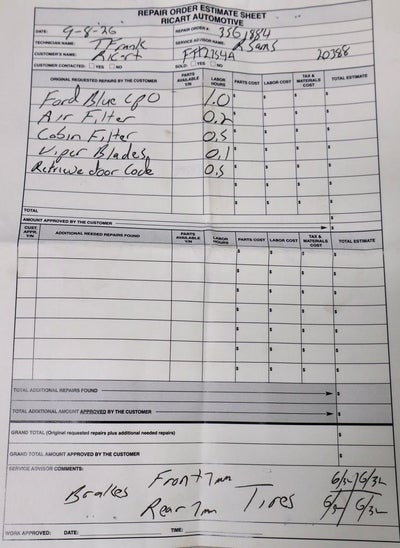 REPAIR ORDER ESTIMATE SHEET
RICART AUTOMOTIVE
DATE: 9-8-26 REPAIR ORDER #: 3561884
TECHNICIAN NAME: T Frank SERVICE ADVISOR NAME: R Sams
CUSTOMER'S NAME: Ricart FT12754A 20388
CUSTOMER CONTACTED: YES NO SOLD: YES NO
ORIGINAL REQUESTED REPAIRS BY THE CUSTOMER PARTS AVAILABLE Y/N LABOR HOURS PARTS COST LABOR COST TAX & MATERIALS COST TOTAL ESTIMATE
Ford Blue CPO 1.0 $ $ $ $
Air Filter 0.2 $ $ $ $
Cabin Filter 0.5 $ $ $ $
Wiper Blades 0.1 $ $ $ $
Retrieve door Code 0.5 $ $ $ $
$ $ $ $
TOTAL $
AMOUNT APPROVED BY THE CUSTOMER $
CUST. APPR. Y/N ADDITIONAL NEEDED REPAIRS FOUND PARTS AVAILABLE Y/N LABOR HOURS PARTS COST LABOR COST TAX & MATERIALS COST TOTAL ESTIMATE
$ $ $ $
$ $ $ $
$ $ $ $
$ $ $ $
$ $ $ $
$ $ $ $
$ $ $ $
TOTAL ADDITIONAL REPAIRS FOUND $
TOTAL ADDITIONAL AMOUNT APPROVED BY THE CUSTOMER $
GRAND TOTAL (Original requested repairs plus additional needed repairs) $
GRAND TOTAL AMOUNT APPROVED BY THE CUSTOMER $
SERVICE ADVISOR COMMENTS:
Brakes Front 7mm Tires 6/32 6/32
Rear 7mm 6/32 6/32
WORK APPROVED: DATE: TIME: